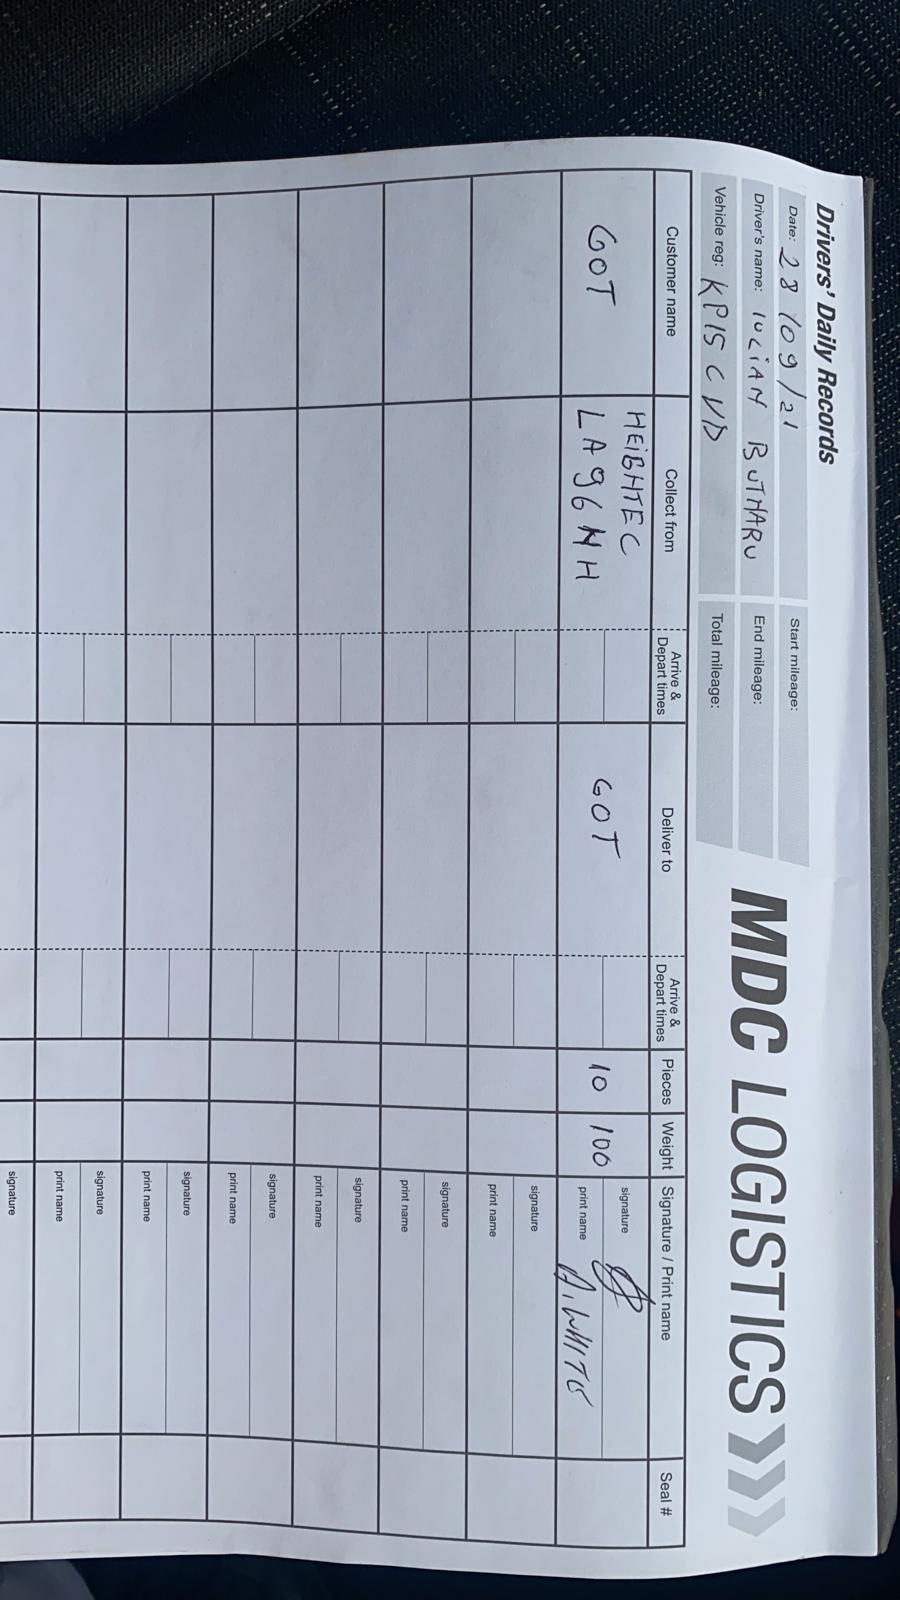 Drivers' Daily Records
MDC LOGISTICS
Date: 28/09/21
Start mileage:
Driver's name: IULIAN BUTNARU
End mileage:
Vehicle reg: KP15 CVD
Total mileage:
Customer name Collect from Arrive & Depart times Deliver to Arrive & Depart times Pieces Weight Signature / Print name Seal #
GOT HEIGHTEC LA96NH GOT 10 100 signature
print name A. WHITE
signature
print name
signature
print name
signature
print name
signature
print name
signature
print name
signature
print name
signature